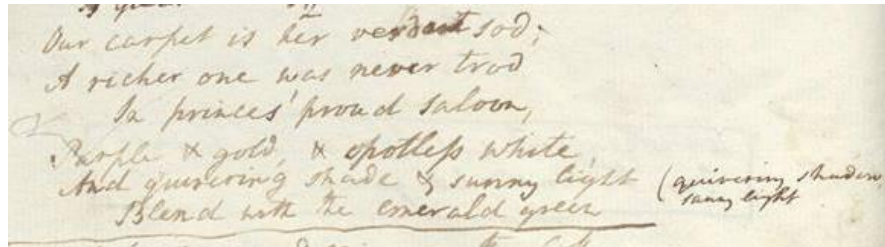 Our carpet is her verdant sod;
A richer one was never trod
In princes' proud saloon,
Purple & gold, & spotless white
And quivering shade & sunny light (quivering shadow,
sunny light
Blend with the emerald green